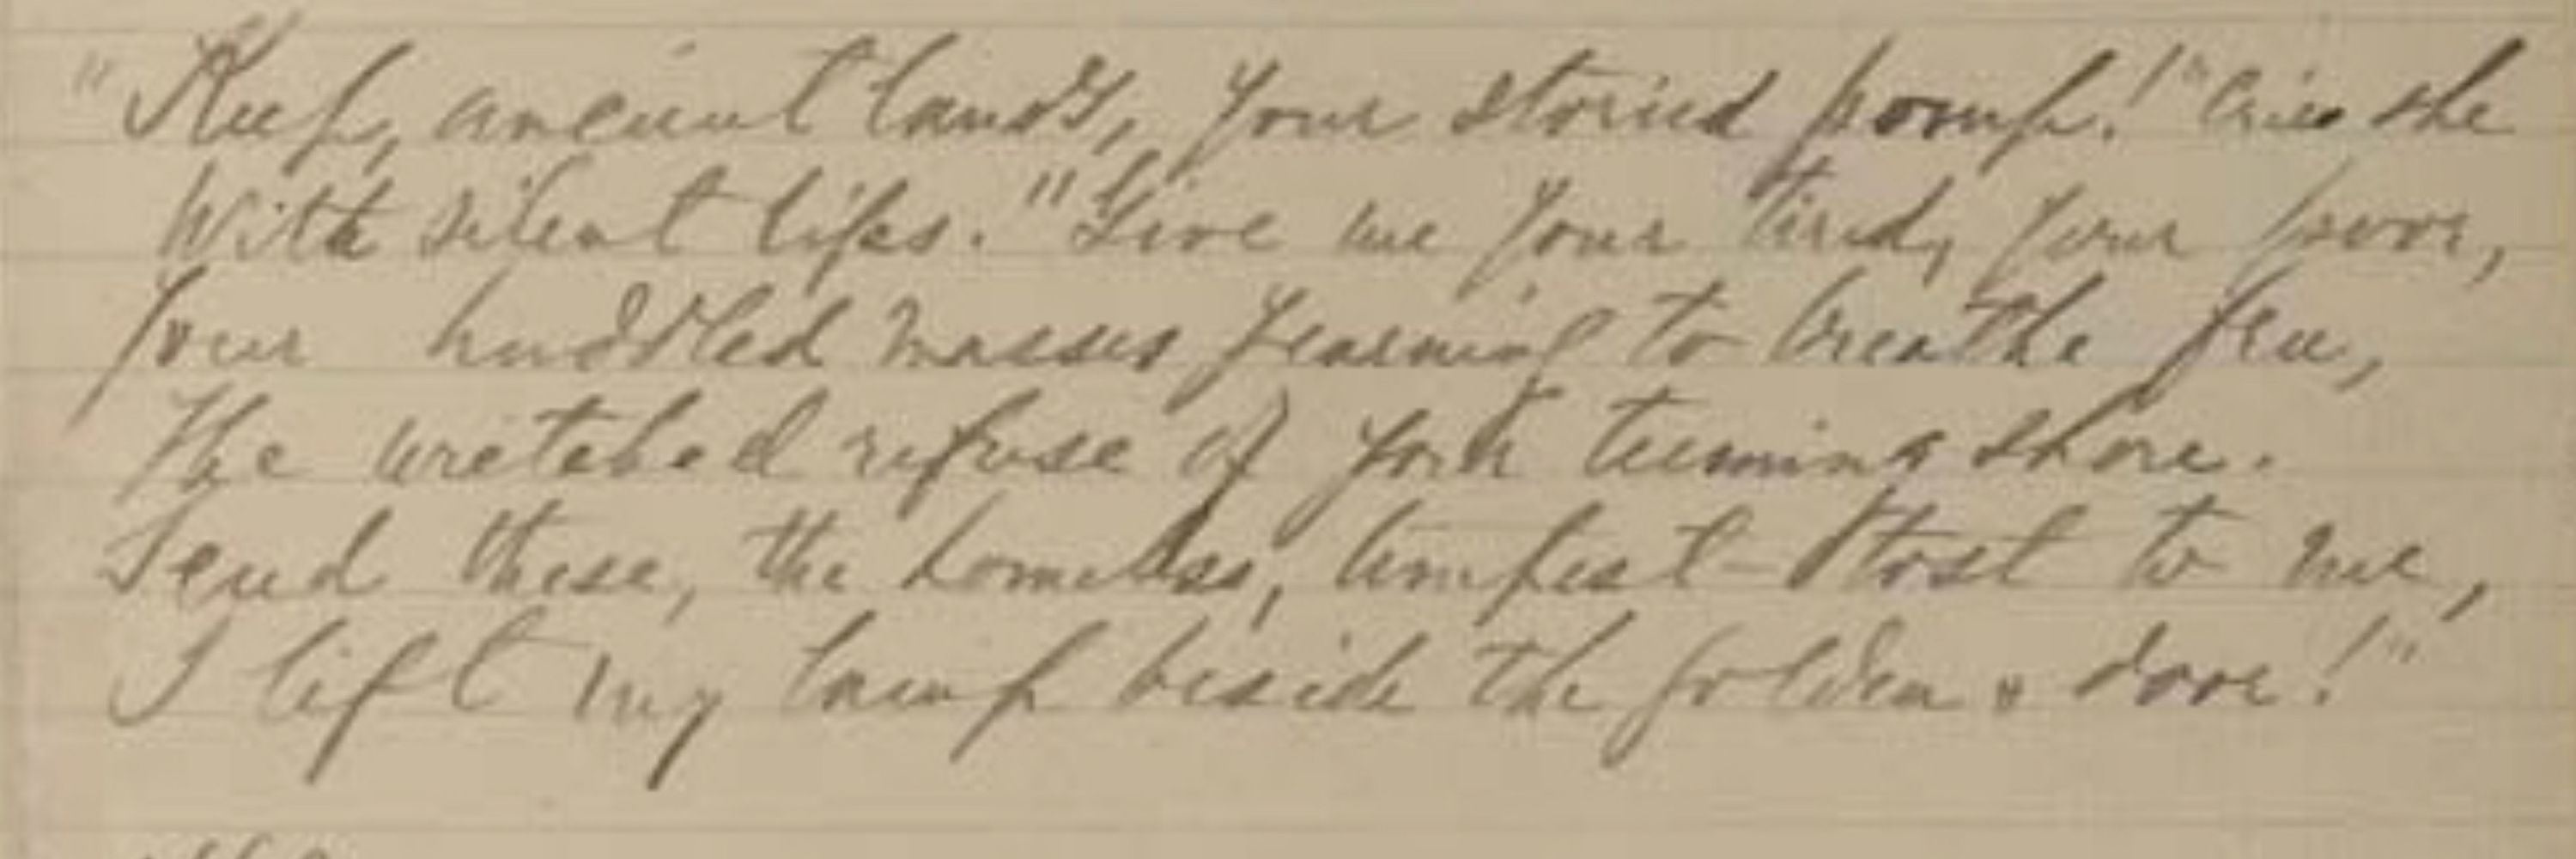 "Keep, ancient lands, your storied pomp!" cries she
With silent lips. "Give me your tired, your poor,
Your huddled masses yearning to breathe free,
The wretched refuse of your teeming shore.
Send these, the homeless, tempest-tost to me,
I lift my lamp beside the golden door!"